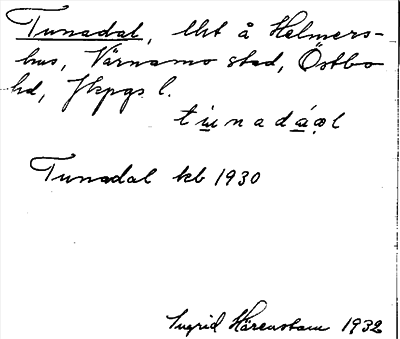 Tunadal, lht å Helmers-
hus, Värnamo stad, Östbo
hd, Jkpgs l.
Tunadal kb 1930
Ingrid Härenstam 1932